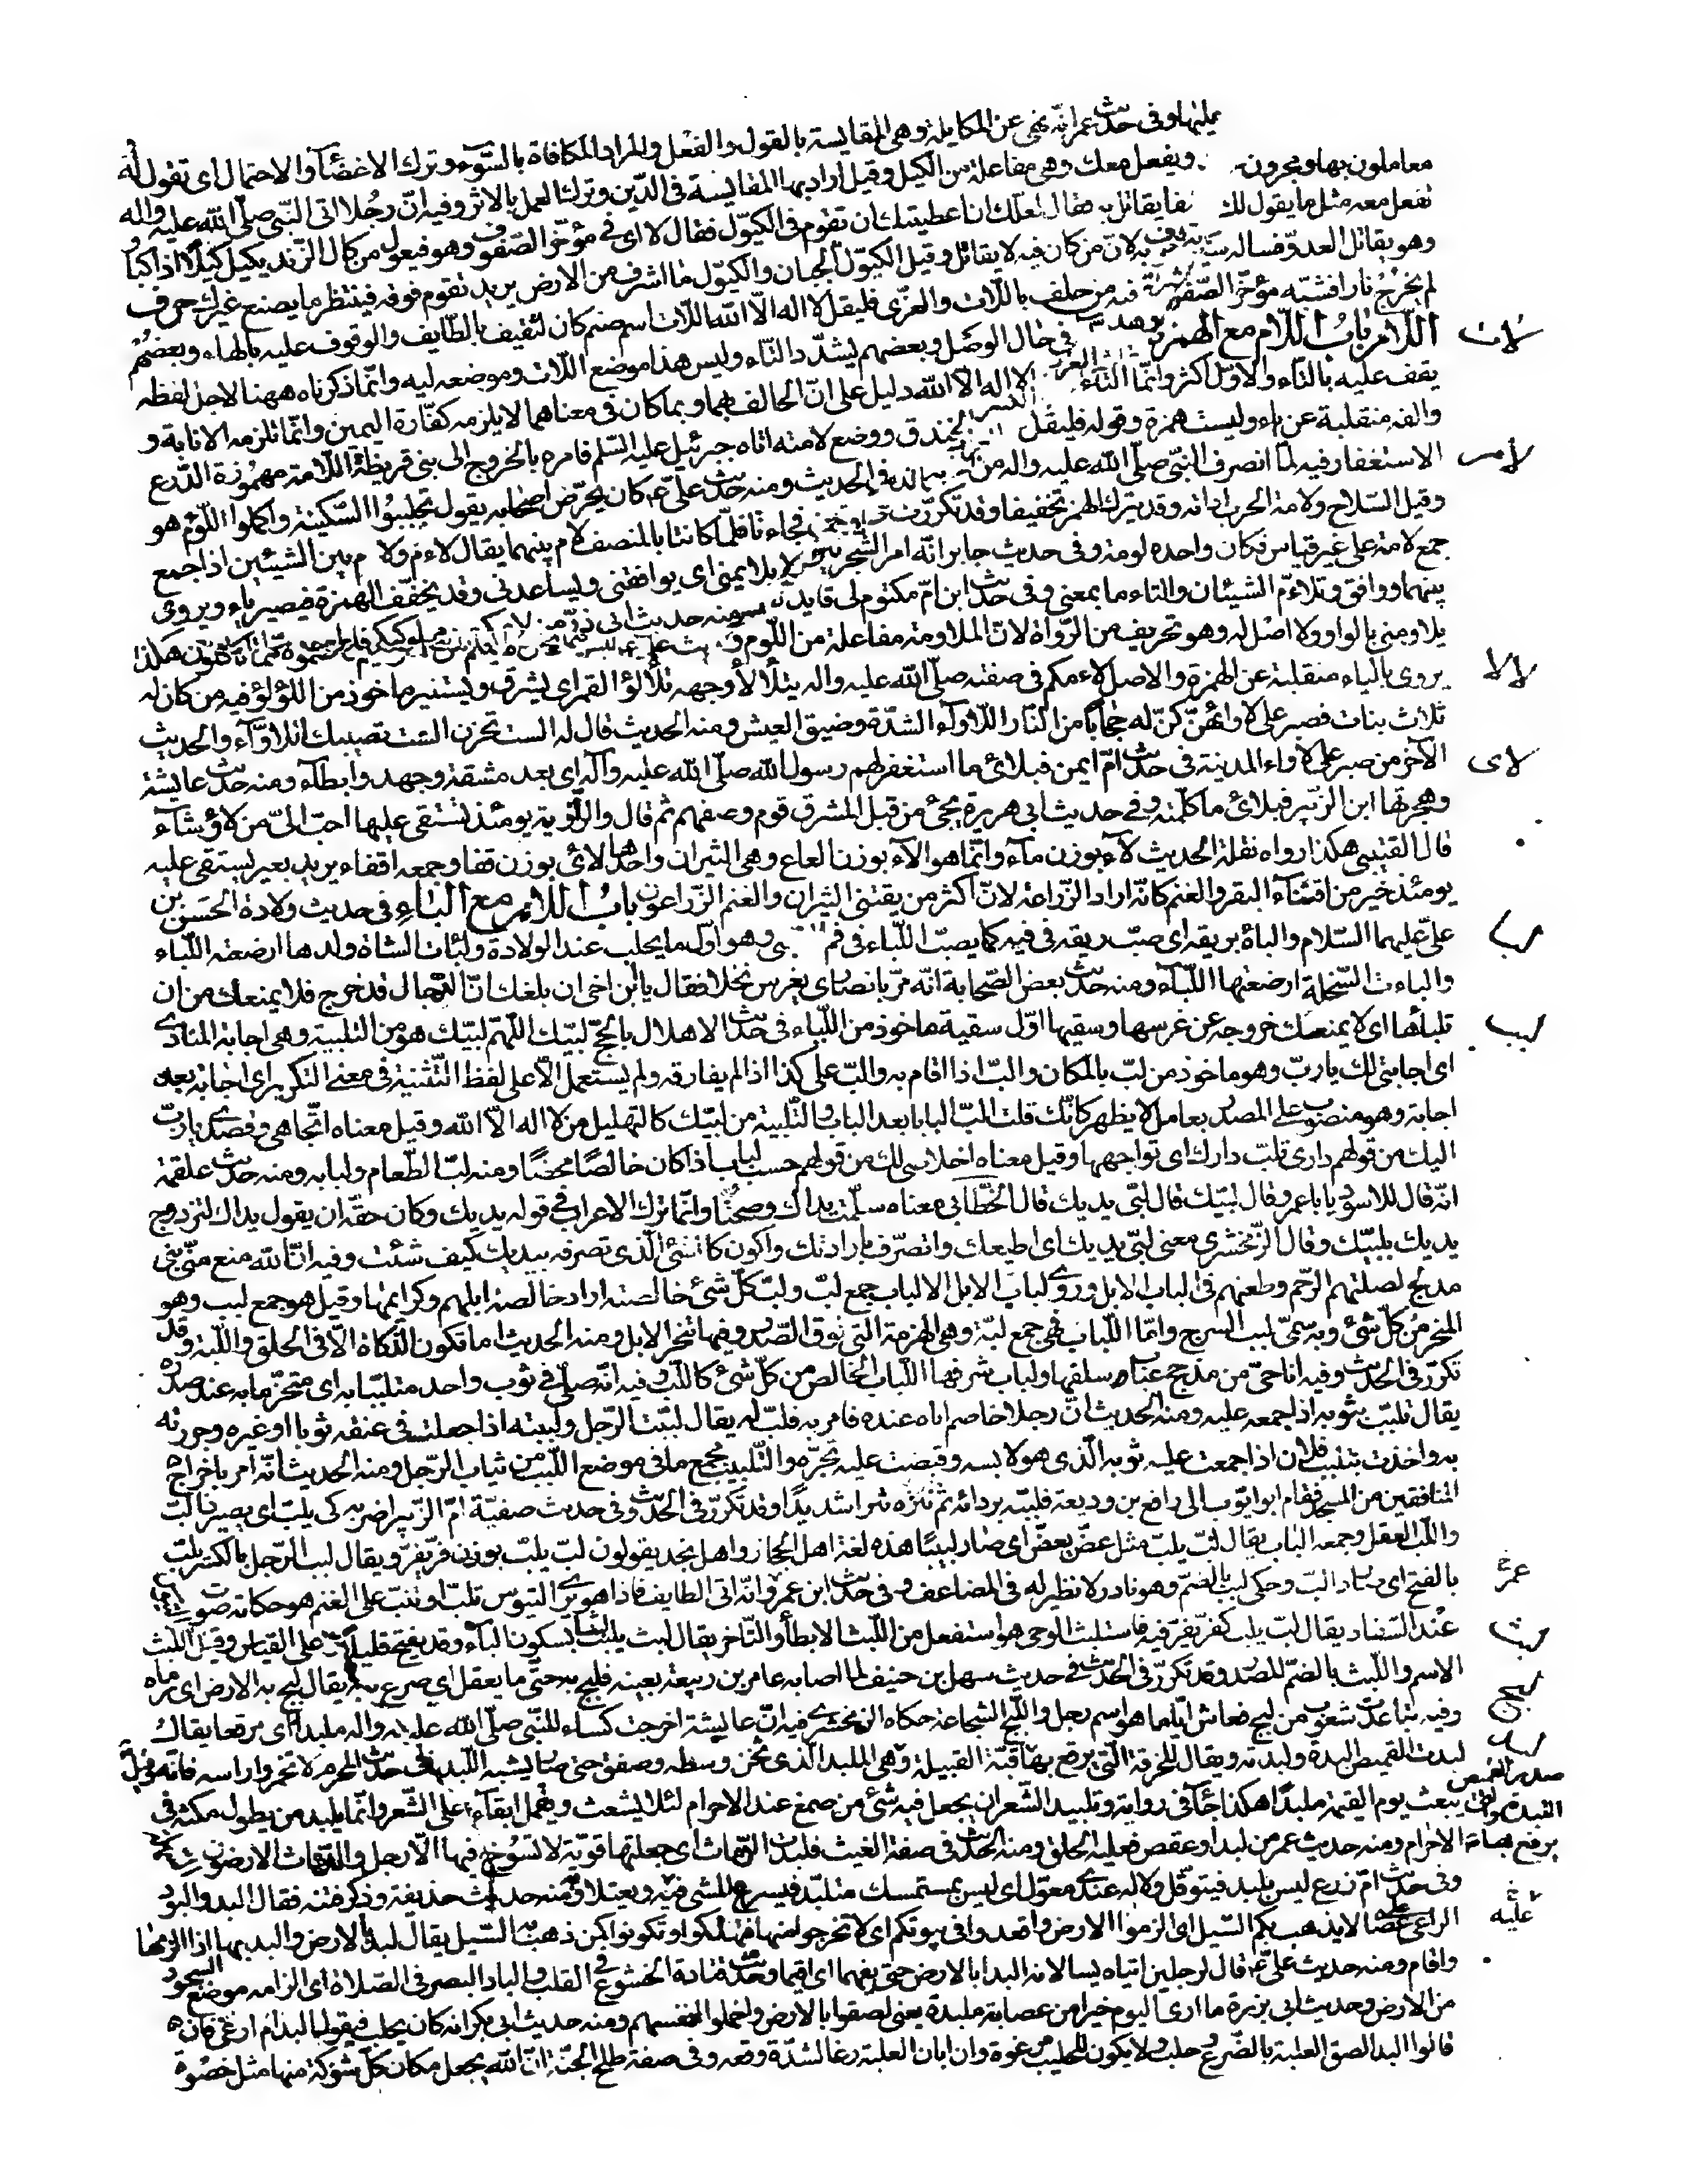 يمليها وفى حديث عمر انّه نهى عن المكايلة وهى المقايسة بالقول والفعل والمراد المكافاة بالسّوء وترك الاغضآء والاحتمال اى تقول له
معاملون بها ويجرون ويفعل معك وهى مفاعلة من الكيل وقيل اراد بها المقايسة فى الدّين وترك العمل بالاثر وفيه انّ رجلا اتى النّبى صلّى الله عليه واله
تفعل معه مثل ما يقول لك
وهو يقاتل العدوّ فساله يقاتل به فقال لعلّك ان اعطيتك ان تقوم فى الكيّول فقال لا اى فى مؤخّر الصّفوف وهو فيعول من كال الزّند يكيل كيلا اذا كبا
لم يخرج نارا فشبّه مؤخّر الصّفوف به لانّ من كان فيه لا يقاتل وقيل الكيّول الجبان والكيّول ما اشرف من الارض يريد تقوم فوقه فينتظر ما يصنع غيرك حرف
اللّام باب اللّام مع الهمزة فيه من حلف باللّات والعزّى فليقل لا اله الّا الله اللّات اسم صنم كان لثقيف بالطّايف والوقوف عليه بالهاء وبعضهم
لات
يقف عليه بالتّاء والاوّل اكثر وانّما التّاء فى حال الوصل وبعضهم يشدّد التّاء وليس هذا موضع اللّات وموضعه ليه وانّما ذكرناه ههنا لاجل لفظه
والفه منقلبة عن ياء وليست همزة وقوله فليقل لا اله الا الله دليل على انّ الحالف بهما وبما كان فى معناهما لا يلزمه كفّارة اليمين وانّما تلزمه الانابة و
الاستغفار فيه لمّا انصرف النّبىّ صلّى الله عليه واله من الخندق ووضع لامته اتاه جبرئيل عليه السّلم فامره بالخروج الى بنى قريظة اللّامة مهموزة الدّرع
لام
وقيل السّلاح ولامة الحرب اداته وقد يترك الهمز تخفيفا وقد تكرّرت فى الحديث ومنه حديث علىّ ع كان يحرّض اصحابه يقول تجلببوا السّكينة واكملوا اللّؤم هو
جمع لامة على غير قياس فكان واحده لومة وفى حديث جابر انّه امر الشّجرتين فجاءتا فلمّا كانتا بالمنصف لام بينهما يقال لاءم ولام بين الشيئين اذا جمع
بينهما ووافق وتلاءم الشيئان والتاءما بمعنى وفى حديث ابن امّ مكتوم لى قايد لا يلايمنى اى يوافقنى ويساعدنى وقد يخفّف الهمزة فيصير ياء ويروى
يلاومنى بالواو ولا اصل له وهو تحريف من الرّواة لانّ الملاومة مفاعلة من اللّوم ومنه حديث ابى ذرّ من لايمكم من مملوكيكم فاطعموه ممّا تاكلون هكذا
يروى بالياء منقلبة عن الهمزة والاصل لاءمكم فى صفته صلّى الله عليه واله يتلألأ وجهه تلألؤ القمر اى يشرق ويستنير ماخوذ من اللّؤلؤ فيه من كان له
لالا
ثلاث بنات فصبر على لاوائهنّ كنّ له حجابا من النّار اللّاوآء الشدّة وضيق العيش ومنه الحديث قال له الست تحزن الست تصيبك اللاوآء والحديث
الآخر من صبر على لاواء المدينة فى حديث امّ ايمن فبلأى ما استغفر لهم رسول الله صلّى الله عليه وآله اى بعد مشقة وجهد وابطآء ومنه حديث عايشة
لاى
وهجرتها ابن الزّبير فبلأى ما كلّمته وفى حديث ابى هريرة يجئ من قبل المشرق قوم وصفهم ثم قال والرّاوية يومئذ تستقى عليها احبّ الىّ من لاؤ وشآء
قال القتيبى هكذا رواه نقلة الحديث لآء بوزن مآء وانّما هو الآء بوزن العاع وهى الثيران واحدها لائ بوزن قفا وجمعه اقفاء يريد بعير يستقى عليه
يومئذ خير من اقتنآء البقر والغنم كانّه اراد الزّراعة لانّ اكثر من يقتنى الثيران والغنم الزّراعون باب اللّام مع البآء فى حديث ولادة الحسن بن
علىّ عليهما السّلام والباه بريقه اى صبّ ريقه فى فيه كما يصبّ اللّباء فى فم الصّبى وهو اوّل ما يحلب عند الولادة ولبأت الشاة ولدها ارضعته اللّباء
لبا
والباءت السّخلة ارضعتها اللّبآء ومنه حديث بعض الصّحابة انّه مرّ بانصارى يغرس نخلا فقال يا ابن اخى ان بلغك انّ الدّجّال قد خرج فلا يمنعك من ان
تلبأها اى لا يمنعك خروجه عن غرسها وسقيها اوّل سقية ماخوذ من اللّباء فى حديث الاهلال بالحجّ لبّيك اللّهمّ لبّيك هو من التلبية وهى اجابة المنادى
لبب
اى اجابتى لك يا ربّ وهو ماخوذ من لبّ بالمكان والبّ اذا اقام به والبّ على كذا اذا لم يفارقه ولم يستعمل الّا على لفظ التّثنية فى معنى التكرير اى اجابة بعد
اجابة وهو منصوب على المصدر بعامل لا يظهر كانّك قلت البّ البابا بعد الباب والتّلبية من لبّيك كالتهليل من لا اله الّا الله وقيل معناه اتّجاهى وقصدى يا ربّ
اليك من قولهم دارى تلبّ دارك اى تواجهها وقيل معناه اخلاصى لك من قولهم حسب لباب اذا كان خالصا محضا ومنه لبّ الطّعام ولبابه ومنه حديث علقمة
انّه قال للاسود يا با عمرو قال لبّيك قال لبّى يديك قال الخطّابى معناه سلمت يداك وصحّتا وانّما ترك الاعراب فى قوله يديك وكان حقّه ان يقول يداك لتزدوج
يديك بلبّيك وقال الزّمخشرى معنى لبّى يديك اى اطيعك واتصرّف بارادتك واكون كالشئ الّذى تصرفه بيديك كيف شئت وفيه انّ الله منع منّى بنى
مدلج لصلتهم الرّحم وطعنهم فى الباب الابل وروى لباب الابل الالباب جمع لبّ ولبّ كلّ شئ خالصته اراد خالصة ابلهم وكرايمها وقيل هو جمع لبب وهو
المنحر من كلّ شئ وبه سمّى لبب السرج وامّا اللّباب فهى جمع لبّة وهى الهزمة التى فوق الصّدر وفيها تنحر الابل ومنه الحديث اما تكون الذّكاة الّا فى الحلق واللّبّة وقد
تكرّر فى الحديث وفيه انا حىّ من مذحج عباب سلفها ولباب شرفها اللّباب الخالص من كلّ شئ كاللّبّ وفيه انّه صلّى فى ثوب واحد متلبّبا به اى متحزّما به عند صدره
يقال تلبّب بثوبه اذا جمعه عليه ومنه الحديث انّ رجلا خاصم اباه عنده فامر به فلبّ له يقال لببت الرّجل ولبّبته اذا جعلت فى عنقه ثوبا او غيره وجررته
به واخذت بتلبيب فلان اذا جمعت عليه ثوبه الّذى هو لابسه وقبضت عليه تجرّه والتّلبيب مجمع ما فى موضع اللّبب من ثياب الرّجل ومنه الحديث انّه امر باخراج
المنافقين من المسجد فقام ابو ايّوب الى رافع بن وديعة فلبّبه بردائه ثم نتره نترا شديدا وقد تكرّر فى الحديث وفى حديث صفيّة امّ الزّبير اضربه كى يلبّ اى يصير ذا لبّ
واللّبّ العقل وجمعه الباب يقال لبّ يلبّ مثل عضّ يعضّ اى صار لبيبا هذه لغة اهل الحجاز واهل نجد يقولون لبّ يلبّ بوزن فرّ يفرّ ويقال لبب الرّجل بالكسر يلبّ
بالفتح اى صار ذا لبّ وحكى لبب بالضمّ وهو نادر لا نظير له فى المضاعف وفى حديث ابن عمرو انّه اتى الطايف فاذا هو يرى التيوس تلبّ او تنبّ على الغنم هو حكاية صوت
عند السّفاد يقال لبّ يلبّ كفرّ يفرّ فيه فاستلبث الوحى هو استفعل من اللّبث الابطآء والتّاخر يقال لبث يلبث لبثا بسكون البآء وقد يفتح قليلا على القياس وقيل اللّبث
لبث
الاسم واللّبث بالضمّ المصدر وقد تكرّر فى الحديث فى حديث سهل بن حنيف لما اصابه عامر بن ربيعة بعينه فلبج به حتّى ما يعقل اى صرع به يقال لبج به الارض اى رماه
لبج
وفيه تباعدت شعوب من لبج فعاش ايّاما هو اسم رجل واللّبج الشّجاعة حكاه الزّمخشرى فيه انّ عايشة اخرجت كساء للنّبى صلّى الله عليه واله ملبدا اى مرقعا يقال
لبد
لبدت القميص البده ولبدته ويقال للخرقة التى يرقع بها قبّة القبيلة وهى الملبد الّذى ثخن وسطه وصفق حتى صار يشبه اللّبد وفى حديث المحرم لا تخمروا راسه فانّه
صدر القميص
يبعث يوم القيمة ملبدا هكذا جآء فى رواية وتلبيد الشّعر ان يجعل فيه شئ من صمغ عند الاحرام لئلا يشعث ويقمل ابقآء على الشّعر وانّما يلبد من يطول مكثه فى
الاحرام ومنه حديث عمر من لبد او عقص فعليه الحلق ومنه الحديث فى صفة الغيث فلبدت الدّماث اى جعلتها قويّة لا تسوخ فيها الارجل والدّماث الارضون
وفى حديث امّ زرع ليس بلبد فيتوقّل ولا له عندى معوّل اى ليس بمستمسك متلبّد فيسرع المشى فيه ويعتلا ومنه حديث حذيفة وذكر فتنة فقال البدوا لبود
الراعى على عصاه لا يذهب بكم السّيل اى الزموا الارض واقعدوا فى بيوتكم اى لا تخرجوا منها فتهلكوا وتكونوا كمن ذهب به السّيل يقال لبد بالارض والبد بها اذا لزمها
واقام ومنه حديث علىّ ع قال لرجلين اتياه يسالانه البدا بالارض حتى تفهما اى اقيما وحديث قتادة الخشوع فى القلب والباد البصر فى الصّلاة اى الزامه موضع السجود
من الارض وحديث ابى برزة ما ارى اليوم خيرا من عصابة ملبدة يعنى لصقوا بالارض واخملوا انفسهم ومنه حديث ابى بكر انه كان يحلب فيقول البد ام ارغى فان
قالوا البد الصق العلبة بالضّرع وحلب ولا يكون للحليب رغوة وان ابان العلبة رغا لشدّة وقعه وفى صفة طلح الجنّة انّ الله يجعل مكان كلّ شوكة منها مثل خصوة